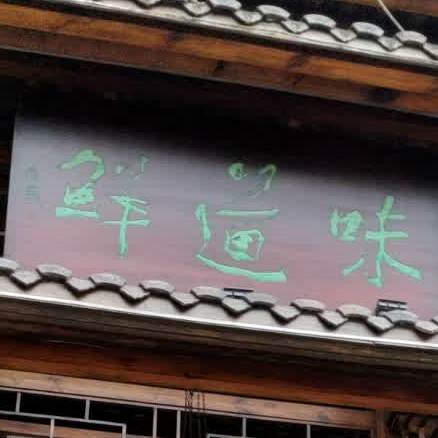 味道鲜